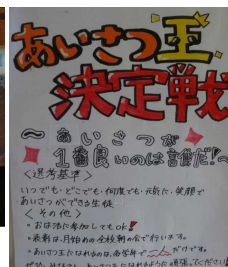 あいさつ王
決定戦
〜あいさつが
1番良いのは言誰だ!〜
<選考基準>
いつでも・どこでも・何度でも・元気に、笑顔で
あいさつができる生徒
<その他>
・おは活に参加してもok!
・表彰は、月始めの全校朝の会で行います。
・あいさつ王になれるのは、各学年で一人だけです。